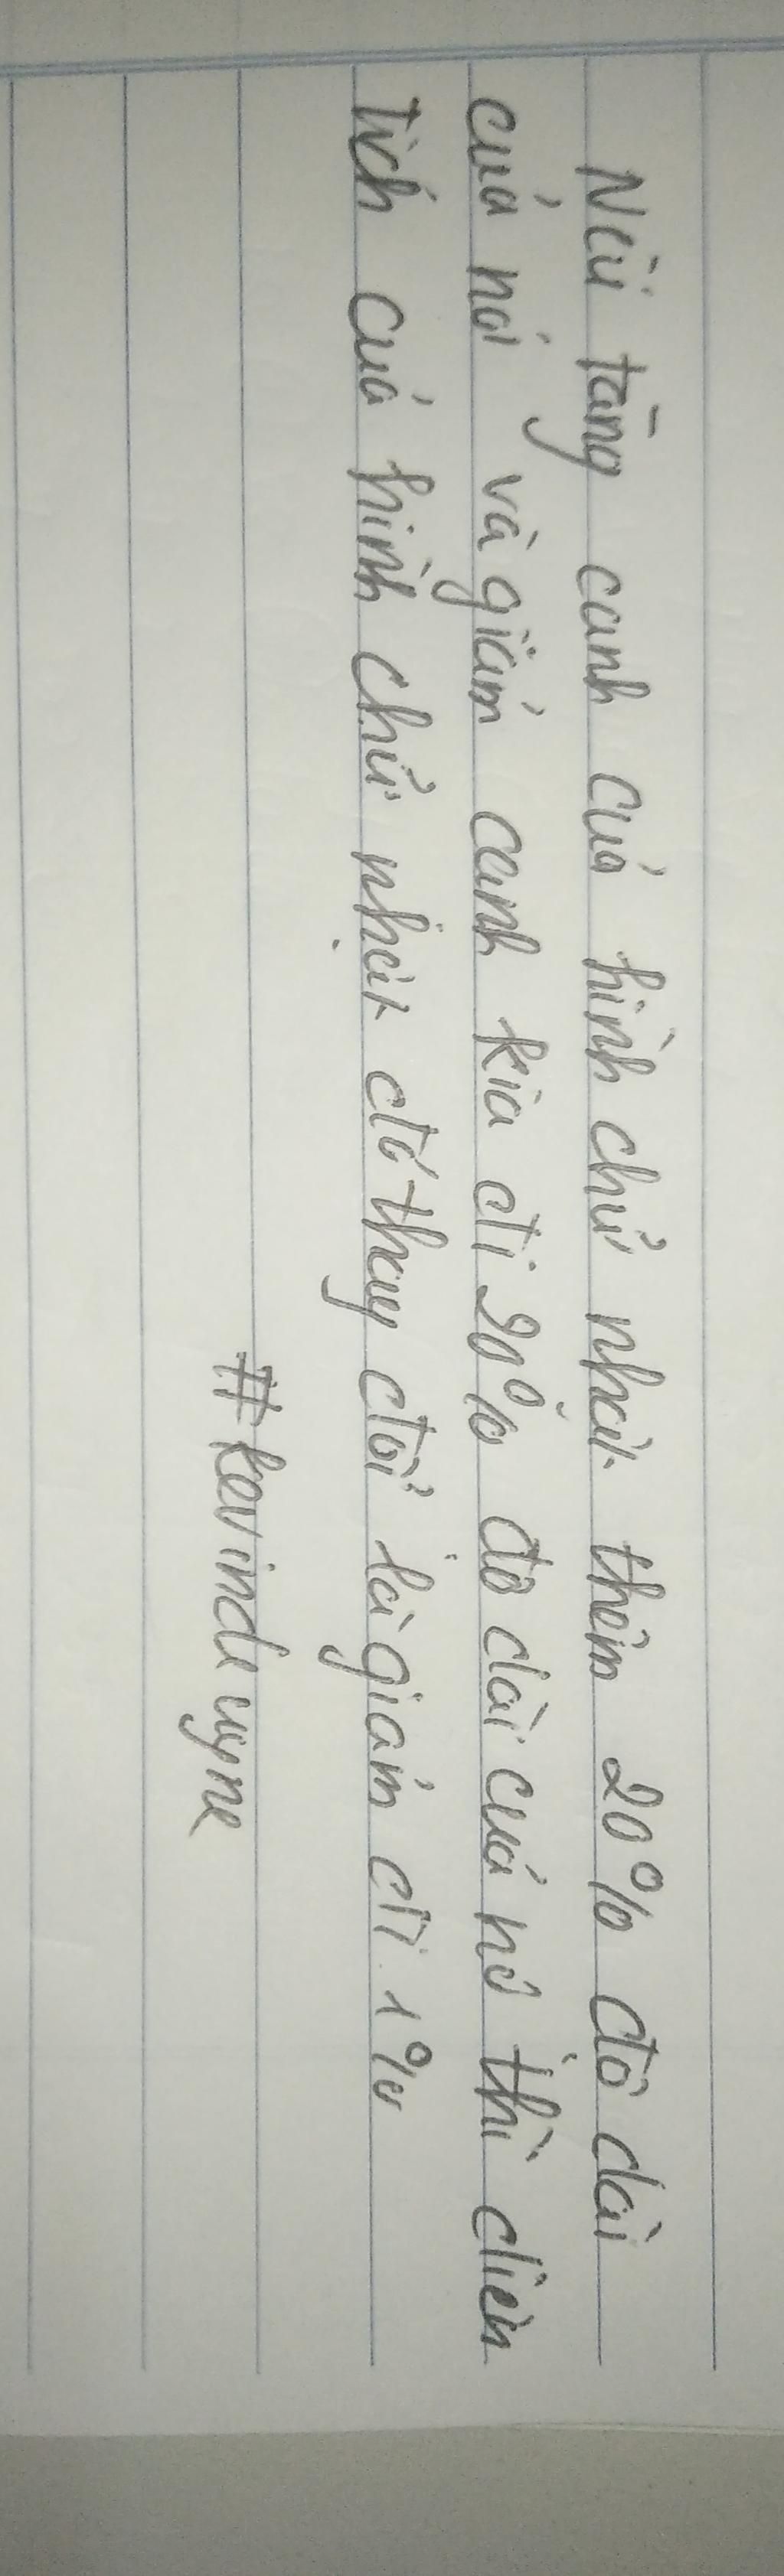 Nếu tăng canh của hình chữ nhật thêm 20% độ dài
của nó và giảm canh kia đi 20% độ dài của nó thì diện
tích của hình chữ nhật đó thay đổi là giảm đi 1%
#kevindeuyne